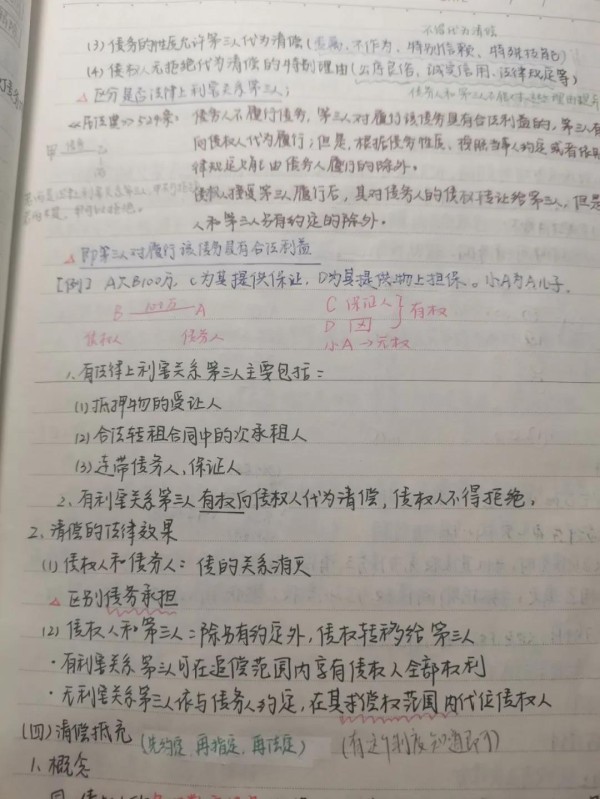 不得代为清偿
(3) 债务的性质允许第三人代为清偿(不作为、特别信赖、特殊技能)
(4) 债权人无拒绝代为清偿的特别理由(公序良俗、诚实信用、法律规定等)
△区分是否法律上利害关系第三人;
《民法典》524条: 债务人不履行债务,第三人对履行该债务具有合法利益的,第三人有
甲 债务 乙
向债权人代为履行;但是,根据债务性质、按照当事人约定或者依
律规定只能由债务人履行的除外。
债权人接受第三人履行后,其对债务人的债权转让给第三人,但是
人和第三人另有约定的除外。
△即第三人对履行该债务具有合法利益
[例] A欠B100万,C为其提供保证,D为其提供物上担保。小A为A儿子。
B 100万 A
C 保证人 } 有权
债权人 债务人
D 囚
小A→无权
1. 有法律上利害关系第三人主要包括:
(1) 抵押物的受让人
(2) 合法转租合同中的次承租人
(3) 连带债务人、保证人
2. 有利害关系第三人有权向债权人代为清偿,债权人不得拒绝。
2. 清偿的法律效果
(1) 债权人和债务人: 债的关系消灭
△区别债务承担
(2) 债权人和第三人: 除另有约定外,债权转移给第三人
·有利害关系第三人可在追偿范围内享有债权人全部权利
·无利害关系第三人依与债务人约定,在其求偿权范围内代位债权人
(四) 清偿抵充 (先约定、再指定、再法定) (有这个制度知道即可)
1. 概念